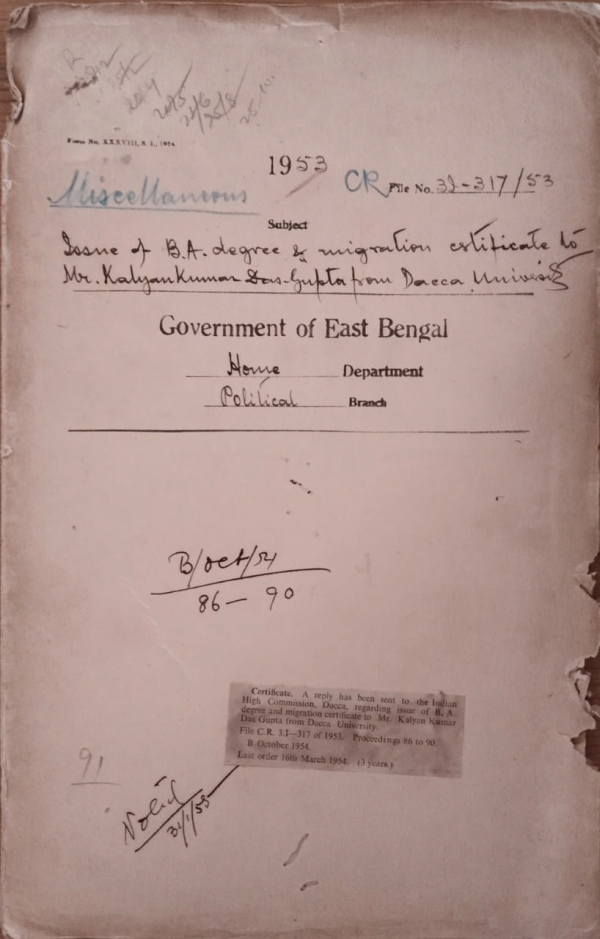 Form No. XXXVIII, S. I., 1924.
1953
CR File No. 3I-317/53
Miscellaneous
Subject
Issue of B.A. degree & migration certificate to
Mr. Kalyan Kumar Das-Gupta from Dacca University
Government of East Bengal
Home Department
Political Branch
B/Oct/54
86 — 90
Certificate. A reply has been sent to the Indian
High Commission, Dacca, regarding issue of B. A.
degree and migration certificate to Mr. Kalyan Kumar
Das Gupta from Dacca University.
File C.R. 3.I—317 of 1953. Proceedings 86 to 90
B October 1954.
Last order 16th March 1954. (3 years.)
91
Noted